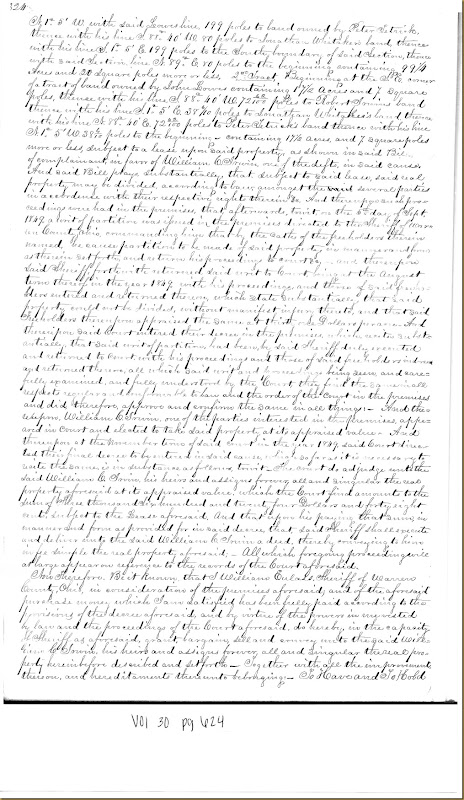 624
N. 1° 5' W. with said Lewis line 199 poles to land owned by Peter Tetrick,
thence with his line S. 88° 40' W. 80 poles to Jonathan Whitaker's land, thence
with his line S. 1° 5' E 199 poles to the South boundary of said Section, thence
with said Section line N. 89° E. 80 poles to the beginning containing 99 1/4
Acres and 20 Square poles more or less. 2nd Tract, Beginning at the corner
of a tract of land owned by John containing 17 1/2 acres and 7 Square
Poles, thence with his line S. 88° 40' W. 72 poles to Robert Irwins land
thence with his line N. 1° 5' E. 38 poles to Jonathan Whitaker's land thence
with his line N. 88° 40' E. 72 poles to Peter Tetricks land thence with his line
N. 1° 5' W. 38 1/2 poles to the beginning containing 17 1/2 acres, and 7 square poles
more or less, subject to a lease upon said property, as shown in said Bill
of complainant in favor of William C. Irwin, one of the defts, in said cause.
And said Bill prays substantially, that subject to said lease, said real
property may be divided according to law, amongst the said several parties
in accordance with their respective rights therein &c. And therefore such pro-
ceedings were had in the premises, that afterwards, to wit on the day of Sept
1849 a writ of partition was issued in the premises directed to the Sheriff of Warr-
en County, Ohio, commanding him that by the oaths of the freeholders therein
named, he cause partition to be made of said property, in manner and form
as therein set forth, and return his proceedings to Court &c. and thereupon
said Sheriff forthwith returned said writ to Court being at the August
term thereof in the year 1849 with his proceedings, and those of said free-
holders entered and returned thereon, which state substantially that said
property could not be divided, without manifest injury thereto, and that said
freeholders therefore appraised the same at thirty six Dollars per acre. And
thereupon said Court entered their decree in the premises, which recites subst-
antially, that said writ of partition, had been by said Sheriff duly executed
and returned to Court with his proceedings and those of said freeholders indorsed
and returned thereon, all which said writ and proceedings being seen and care-
fully examined, and fully understood by the Court they find the same in all
respects regular and conformable to law and the orders of the Court in the premises
and did therefore approve and confirm the same in all things:— And there-
upon William C. Irwin, one of the parties interested in the premises, appe-
ared in Court and elected to take said property at its appraised value. And
thereupon at the November term of said Court in the year 1849 said Court direc-
ted their final decree to be entered in said cause, which so far as it is necessary to
recite the same, is in substance as follows, to wit — The Court do, adjudge unto the
said William C. Irwin, his heirs and assigns forever, all and singular the real
property aforesaid at its appraised value, which the Court find amounts to the
sum of three thousand six hundred and twenty four Dollars and forty eight
cents, subject to the lease aforesaid, And that upon his paying that sum, in
manner and form as provided for in said decree that, said Sheriff shall execute
and deliver unto the said William C. Irwin a deed, thereby conveying to him
in fee simple the real property aforesaid,— All which foregoing proceedings will
at large appear on reference to the records of the Court aforesaid.
Now Therefore. Be it known, that I William Eulass, Sheriff of Warren
County, Ohio, in consideration of the premises aforesaid, and of the aforesaid
purchase money which I am satisfied has been fully paid according to the
provisions of the decree aforesaid, and by virtue of the powers in me vested
by law and the proceedings of the Court aforesaid, do hereby, in the capacity
of Sheriff as aforesaid, grant, bargain, sell and convey unto the said Will-
iam C. Irwin, his heirs and assigns forever, all and singular the real pro-
perty, hereinbefore described and set forth — Together with all the improvements
thereon, and hereditaments thereunto belonging — To Have and To Hold
Vol 30 pg 624